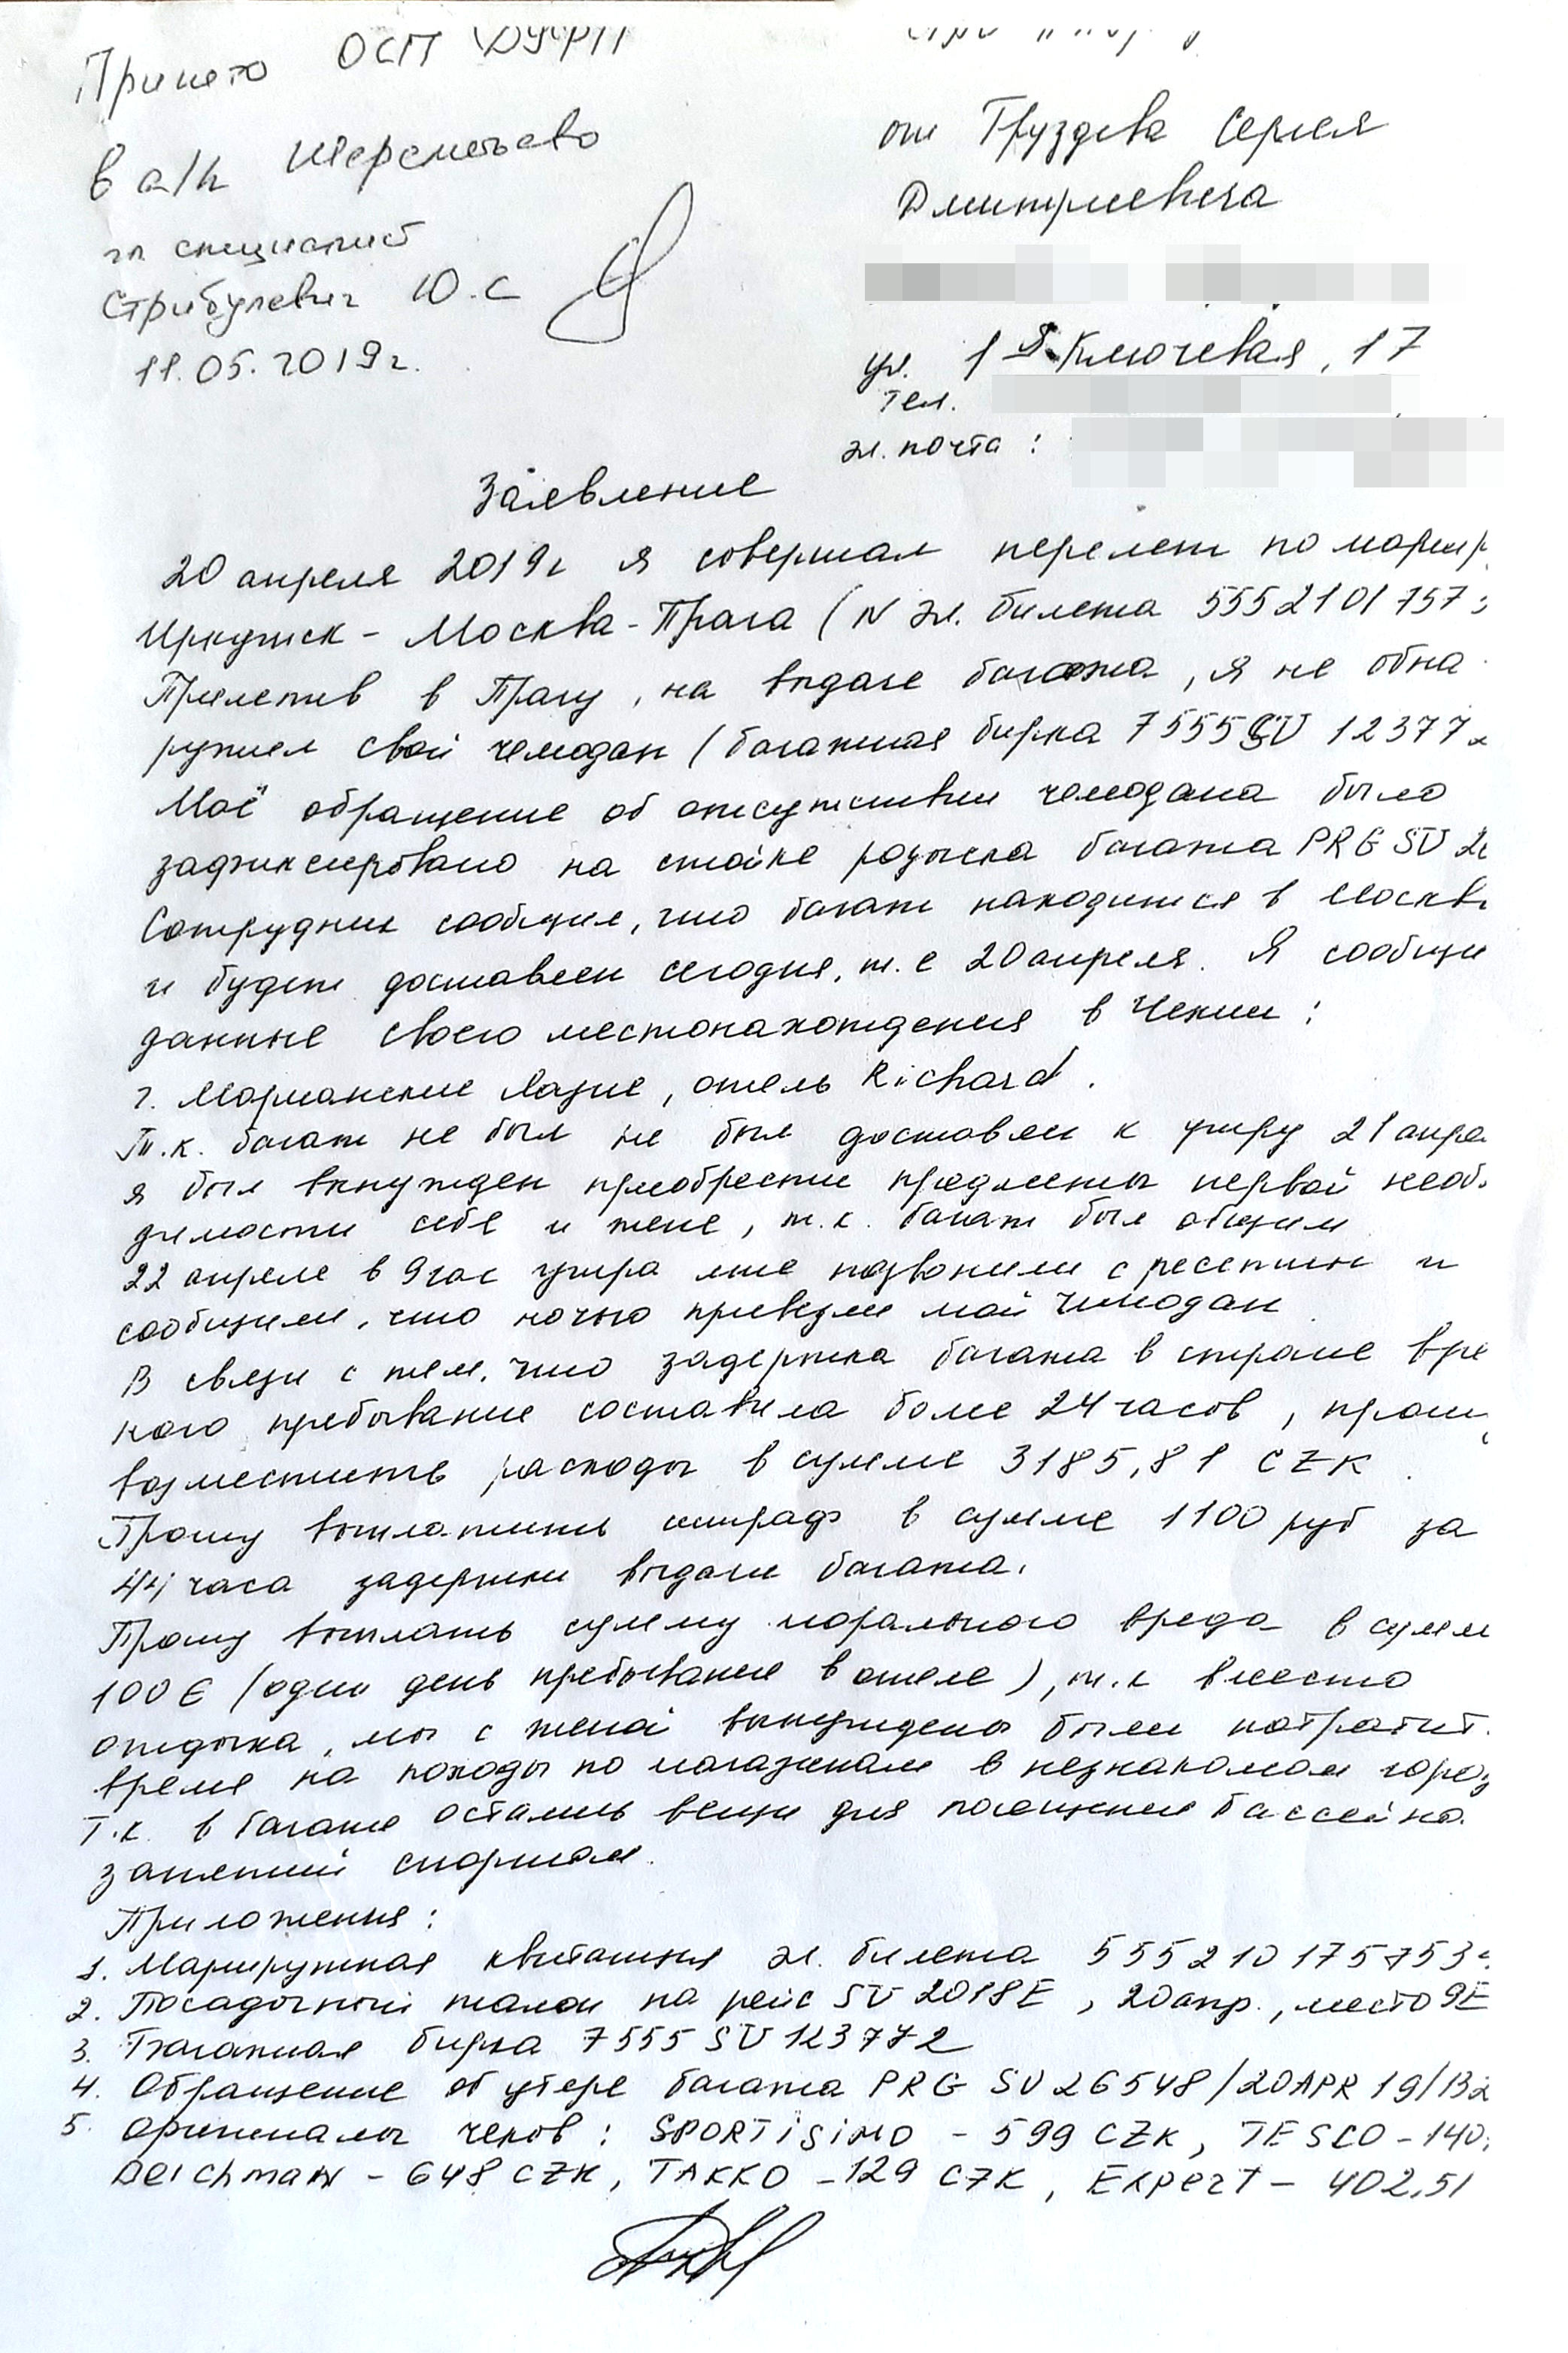 Принято ОСП
в а/п Шереметьево
гл специалист
Стрибулевич Ю.С
11.05.2019г.
от Груздева Сергея
Дмитриевича
ул. 1я Ключевая, 17
тел.
эл. почта :
Заявление
20 апреля 2019г я совершал перелет по маршр
Иркутск - Москва - Прага (N эл. билета 5552101757
Прилетив в Прагу, на выдаче багажа, я не обна
ружил свой чемодан (багажная бирка 7555SU 12377
Моё обращение об отсутствии чемодана было
зафиксировано на стойке розыска багажа PRG SU 2
Сотрудник сообщил, что багаж находится в Москв
и будет доставлен сегодня, т.е 20 апреля. Я сообщи
данные своего местонахождения в Чехии :
г. Марианские Лазне, отель Richard.
Т.к. багаж не был не был доставлен к утру 21 апре
я был вынужден приобрести предметы первой необ
димости себе и жене, т.к. багаж был общим
22 апреля в 9 час утра мне позвонили с ресепшн и
сообщили, что ночью привезли мой чемодан
В связи с тем, что задержка багажа в стране вре
ного пребывание составила более 24 часов, прош
возместить расходы в сумме 3185,81 CZK.
Прошу выплатить штраф в сумме 1100 руб за
44 часа задержки выдачи багажа.
Прошу выплать сумму морального вреда в сумм
100 € (один день пребывания в отеле), т.к вместо
отдыха, мы с женой вынуждены были потратит
время на походы по магазинам в незнакомом горо
т.к. в багаже остались вещи для посещения бассейна.
занятий спортом.
Приложения :
1. Маршрутная квитанция эл. билета 555210175753
2. Посадочный талон на рейс SU 2018E, 20 апр., место 9E
3. Багажная бирка 7555 SU 123772
4. Обращение об утере багажа PRG SU 26548/20APR 19/132
5. Оригиналы чеков : SPORTiSiMO - 599 CZK, TESCO - 140
Deichmann - 648 CZK, TAKKO - 129 CZK, Expert - 402,51